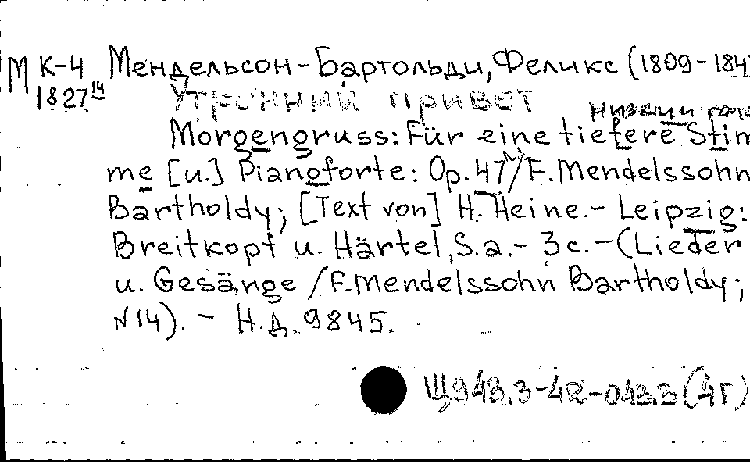 М К-4 Мендельсон-Бартольди, Феликс (1809-184
1827 14 Утренний привет низкий голо
Morgengruss: Für eine tiefere Stim
me [u.] Pianoforte: Op. 47/F. Mendelssohn
Bartholdy; [Text von] H. Heine. - Leipzig:
Breitkopf u. Härtel, S. a. - 3 c. - (Lieder
u. Gesänge / F. Mendelssohn Bartholdy;
N 14). - Н.д. 9845.
Щ943.3-42-043.3 (4Г)